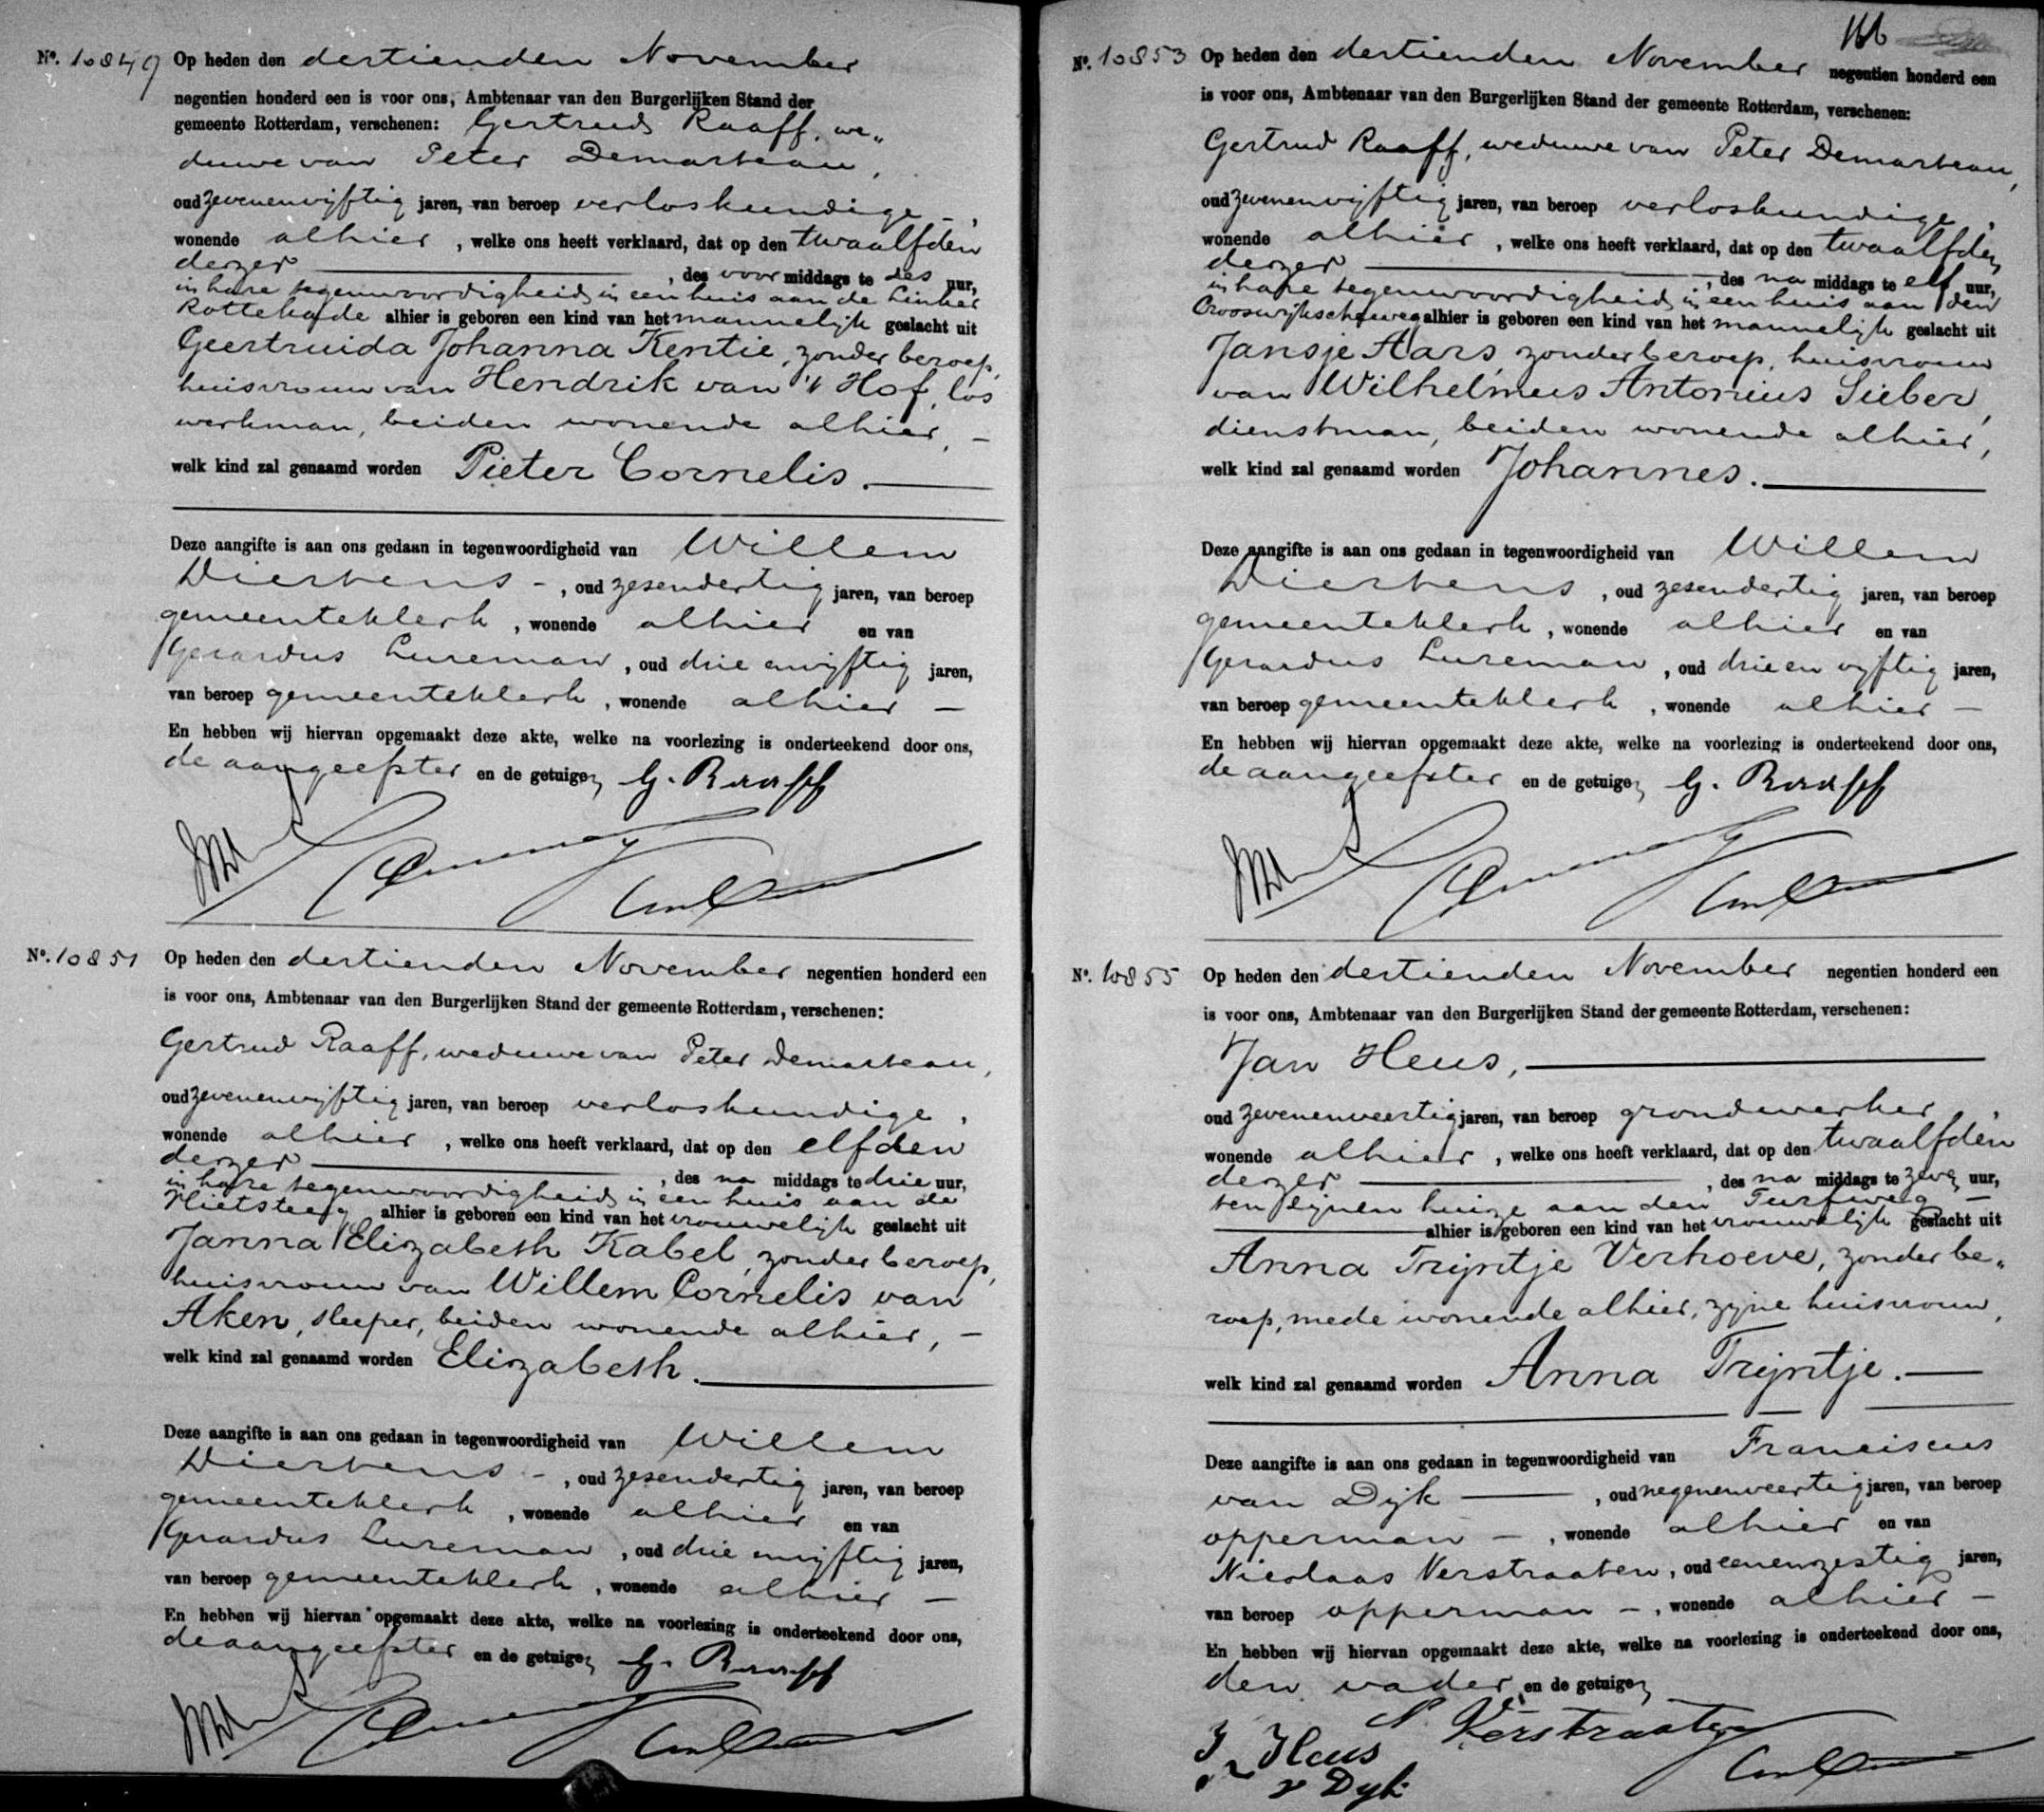 Nº. 10849 Op heden den dertienden November
negentien honderd een is voor ons, Ambtenaar van den Burgerlijken Stand der
gemeente Rotterdam, verschenen: Gertrud Raaff, we„
duwe van Peter Demarteau,
oud zevenenvijftig jaren, van beroep verloskundige,
wonende alhier, welke ons heeft verklaard, dat op den twaalfden
dezer, des voormiddags te zes uur,
in hare tegenwoordigheid, in een huis aan de Linker
Rottekade alhier is geboren een kind van het mannelijk geslacht uit
Geertruida Johanna Kentie, zonder beroep,
huisvrouw van Hendrik van 't Hof, los
werkman, beiden wonende alhier, —
welk kind zal genaamd worden Pieter Cornelis.
Deze aangifte is aan ons gedaan in tegenwoordigheid van Willem
Diertens -, oud zesendertig jaren, van beroep
gemeenteklerk, wonende alhier en van
Gerardus Lureman, oud drie envijftig jaren,
van beroep gemeenteklerk, wonende alhier —
En hebben wij hiervan opgemaakt deze akte, welke na voorlezing is onderteekend door ons,
de aangeefster en de getuigen G. Raaff
Nº. 10851 Op heden den dertienden November negentien honderd een
is voor ons, Ambtenaar van den Burgerlijken Stand der gemeente Rotterdam, verschenen:
Gertrud Raaff, weduwe van Peter Demarteau,
oud zevenenvijftig jaren, van beroep verloskundige,
wonende alhier, welke ons heeft verklaard, dat op den elfden
dezer, des na middags te drie uur,
in hare tegenwoordigheid, in een huis aan de
alhier is geboren een kind van het vrouwelijk geslacht uit
Janna Elizabeth Kabel, zonder beroep,
huisvrouw van Willem Cornelis van
Aken, sleeper, beiden wonende alhier, —
welk kind zal genaamd worden Elizabeth.
Deze aangifte is aan ons gedaan in tegenwoordigheid van Willem
Diertens -, oud zesendertig jaren, van beroep
gemeenteklerk, wonende alhier en van
Gerardus Lureman, oud drie envijftig jaren,
van beroep gemeenteklerk, wonende alhier —
En hebben wij hiervan opgemaakt deze akte, welke na voorlezing is onderteekend door ons,
de aangeefster en de getuigen G. Raaff
Nº. 10853 Op heden den dertienden November negentien honderd een
is voor ons, Ambtenaar van den Burgerlijken Stand der gemeente Rotterdam, verschenen:
Gertrud Raaff, weduwe van Peter Demarteau,
oud zevenenvijftig jaren, van beroep verloskundige,
wonende alhier, welke ons heeft verklaard, dat op den twaalfden
dezer, des na middags te elf uur,
in hare tegenwoordigheid, in een huis aan den
Crooswijkscheweg alhier is geboren een kind van het mannelijk geslacht uit
Jansje Aars, zonder beroep, huisvrouw
van Wilhelmus Antonius Sieber,
dienstman, beiden wonende alhier,
welk kind zal genaamd worden Johannes.
Deze aangifte is aan ons gedaan in tegenwoordigheid van Willem
Diertens, oud zesendertig jaren, van beroep
gemeenteklerk, wonende alhier en van
Gerardus Lureman, oud drie en vijftig jaren,
van beroep gemeenteklerk, wonende alhier —
En hebben wij hiervan opgemaakt deze akte, welke na voorlezing is onderteekend door ons,
de aangeefster en de getuigen G. Raaff
Nº. 10855 Op heden den dertienden November negentien honderd een
is voor ons, Ambtenaar van den Burgerlijken Stand der gemeente Rotterdam, verschenen:
Jan Heus,
oud zevenenveertig jaren, van beroep grondwerker,
wonende alhier, welke ons heeft verklaard, dat op den twaalfden
dezer, des na middags te zeven uur,
ten zijnen huize aan den Turfweg —
alhier is geboren een kind van het vrouwelijk geslacht uit
Anna Trijntje Verhoeve, zonder be„
roep, mede wonende alhier, zijne huisvrouw,
welk kind zal genaamd worden Anna Trijntje. —
Deze aangifte is aan ons gedaan in tegenwoordigheid van Franciscus
van Dijk —, oud negenenveertig jaren, van beroep
opperman —, wonende alhier en van
Nicolaas Verstraaten, oud eenenzestig jaren,
van beroep opperman —, wonende alhier —
En hebben wij hiervan opgemaakt deze akte, welke na voorlezing is onderteekend door ons,
den vader en de getuigen
N. Verstraaten
J Heus
v Dyk